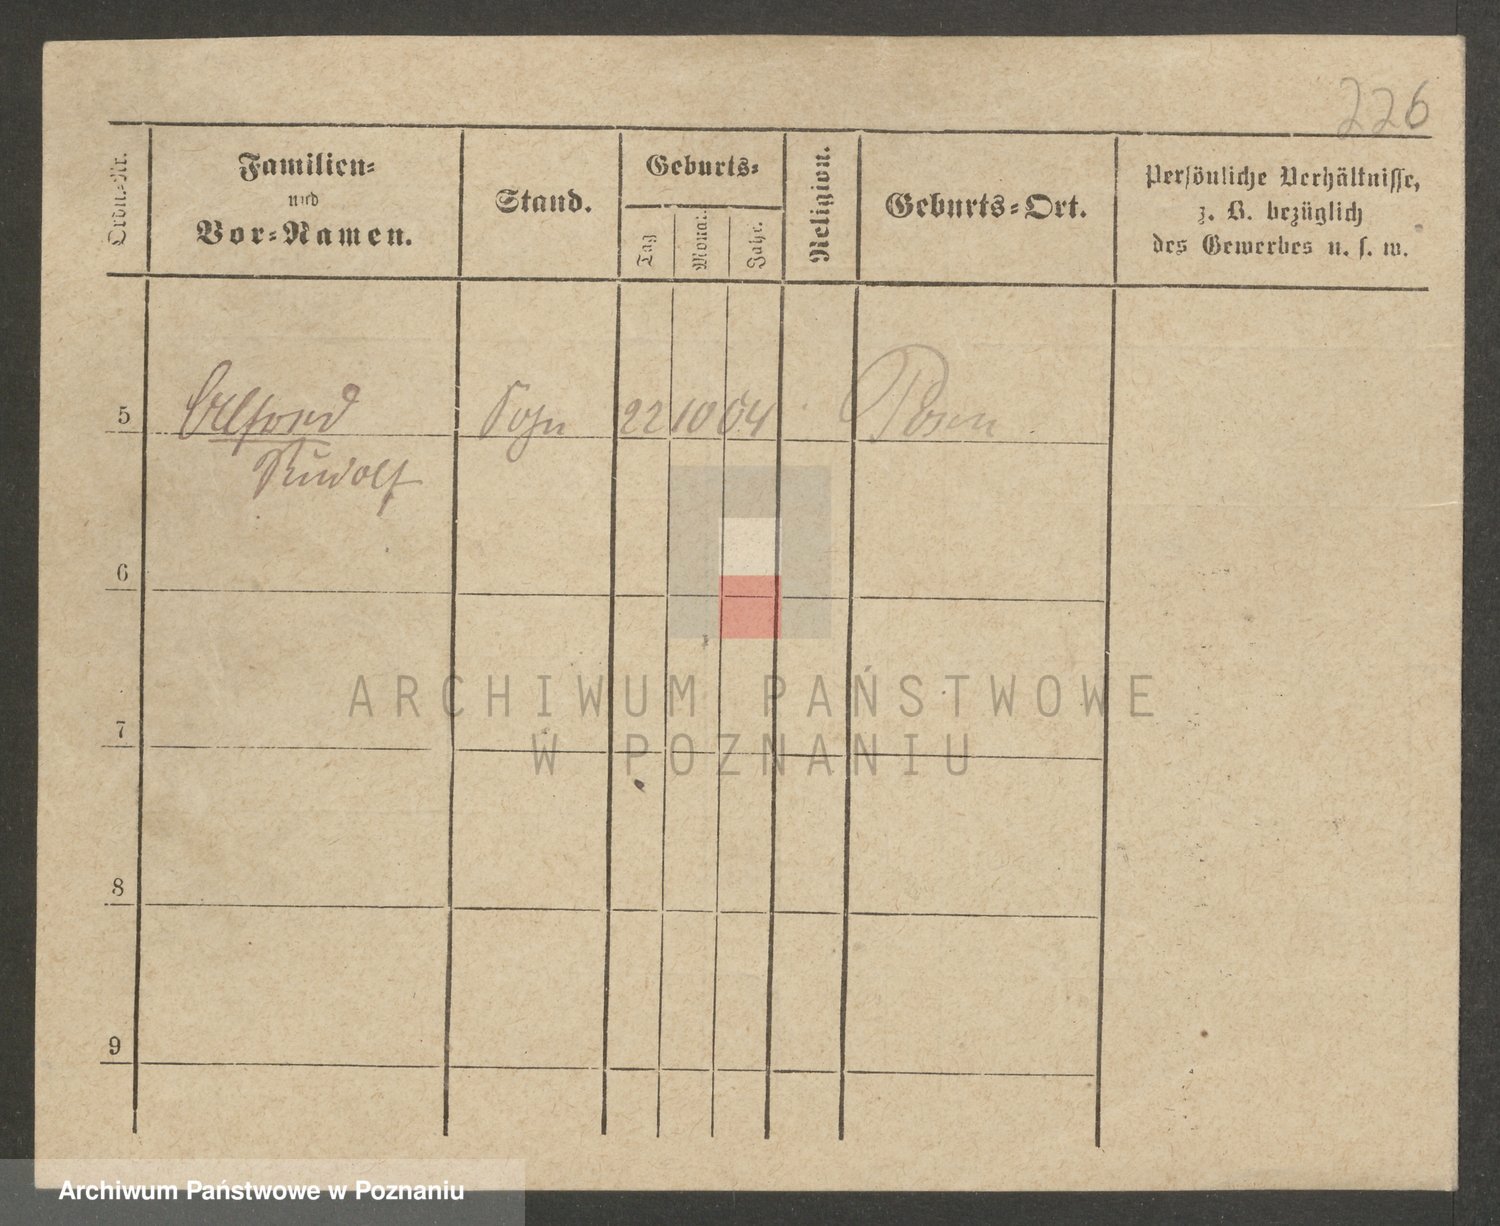 226
Ordn.-Nr.
Familien-
und
Vor-Namen.
Stand.
Geburts-
Tag
Monat.
Jahr.
Religion.
Geburts-Ort.
Persönliche Verhältnisse,
z. B. bezüglich
des Gewerbes u. s. w.
5
Alfred
Sohn
22
10
04
Posen
Rudolf
6
7
8
9
ARCHIWUM PAŃSTWOWE
W POZNANIU
Archiwum Państwowe w Poznaniu